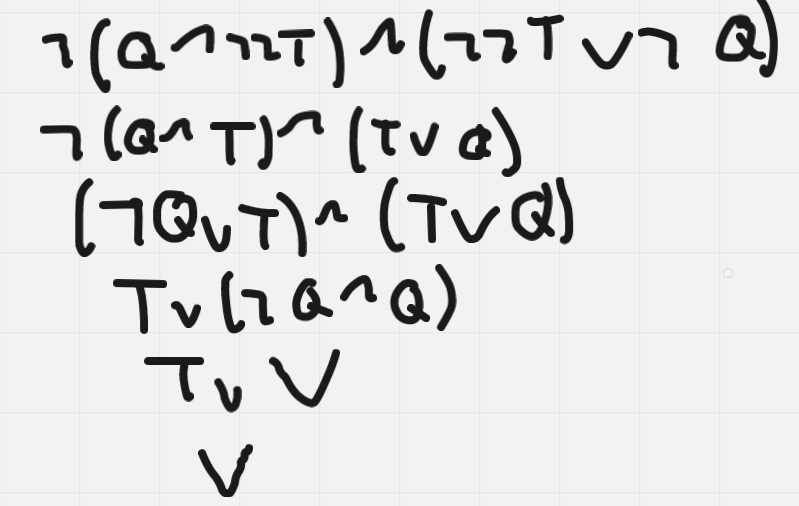 ¬(Q∧¬¬T)∧(¬¬T∨¬Q)
¬(Q∧T)∧(T∨Q)
(¬Q∨T)∧(T∨Q)
T∨(¬Q∧Q)
T∨V
V